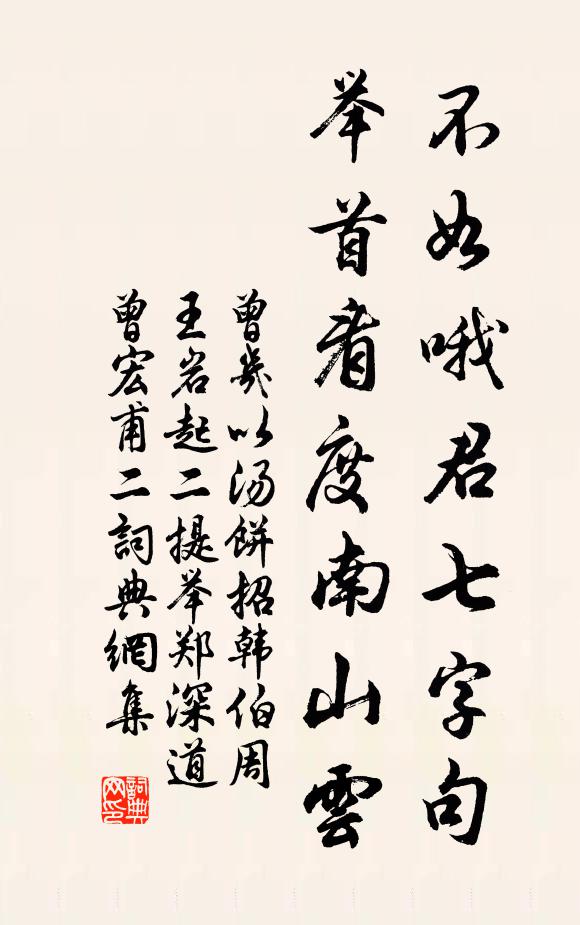 不如哦君七字句
举首看度南山雲
曾幾以汤餅招韩伯周
王岩起二提举郑深道
曾宏甫二詞典網集
詞典网印